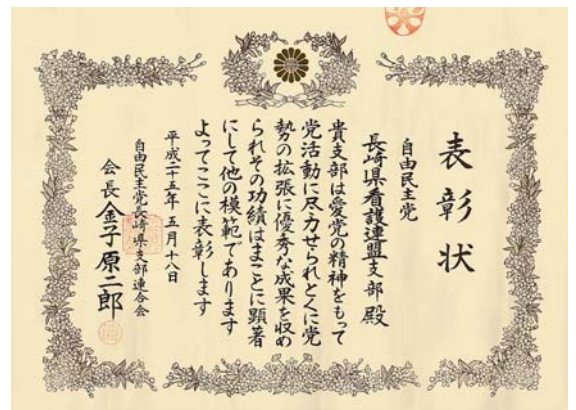 表彰状
自由民主党
長崎県看護連盟支部殿
貴支部は愛党の精神をもって
党活動に尽力せられとくに党
勢の拡張に優秀な成果を収め
られその功績はまことに顕著
にして他の模範であります
よってここに表彰します
平成二十五年五月十八日
自由民主党長崎県支部連合会
会長金子原二郎